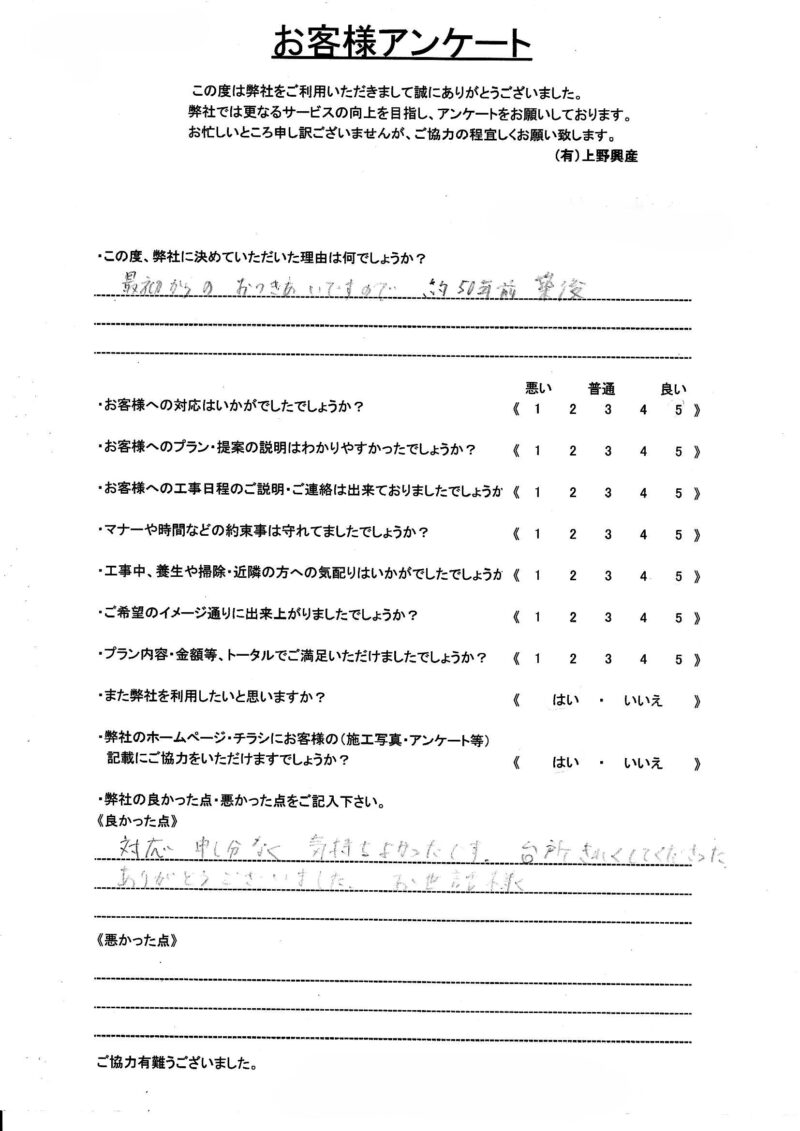 お客様アンケート
この度は弊社をご利用いただきまして誠にありがとうございました。
弊社では更なるサービスの向上を目指し、アンケートをお願いしております。
お忙しいところ申し訳ございませんが、ご協力の程宜しくお願い致します。
(有)上野興産
・この度、弊社に決めていただいた理由は何でしょうか?
最初からの おつきあいですので 約50年前 築後
悪い 普通 良い
・お客様への対応はいかがでしたでしょうか? 《 1 2 3 4 5 》
・お客様へのプラン・提案の説明はわかりやすかったでしょうか? 《 1 2 3 4 5 》
・お客様への工事日程のご説明・ご連絡は出来ておりましたでしょうか 《 1 2 3 4 5 》
・マナーや時間などの約束事は守れてましたでしょうか? 《 1 2 3 4 5 》
・工事中、養生や掃除・近隣の方への気配りはいかがでしたでしょうか 《 1 2 3 4 5 》
・ご希望のイメージ通りに出来上がりましたでしょうか? 《 1 2 3 4 5 》
・プラン内容・金額等、トータルでご満足いただけましたでしょうか? 《 1 2 3 4 5 》
・また弊社を利用したいと思いますか? 《 はい ・ いいえ 》
・弊社のホームページ・チラシにお客様の(施工写真・アンケート等)
記載にご協力をいただけますでしょうか? 《 はい ・ いいえ 》
・弊社の良かった点・悪かった点をご記入下さい。
《良かった点》
対応 申し分なく 気持ちよかったです。 台所きれくしてくださった
ありがとうございました。 お世話様
《悪かった点》
ご協力有難うございました。